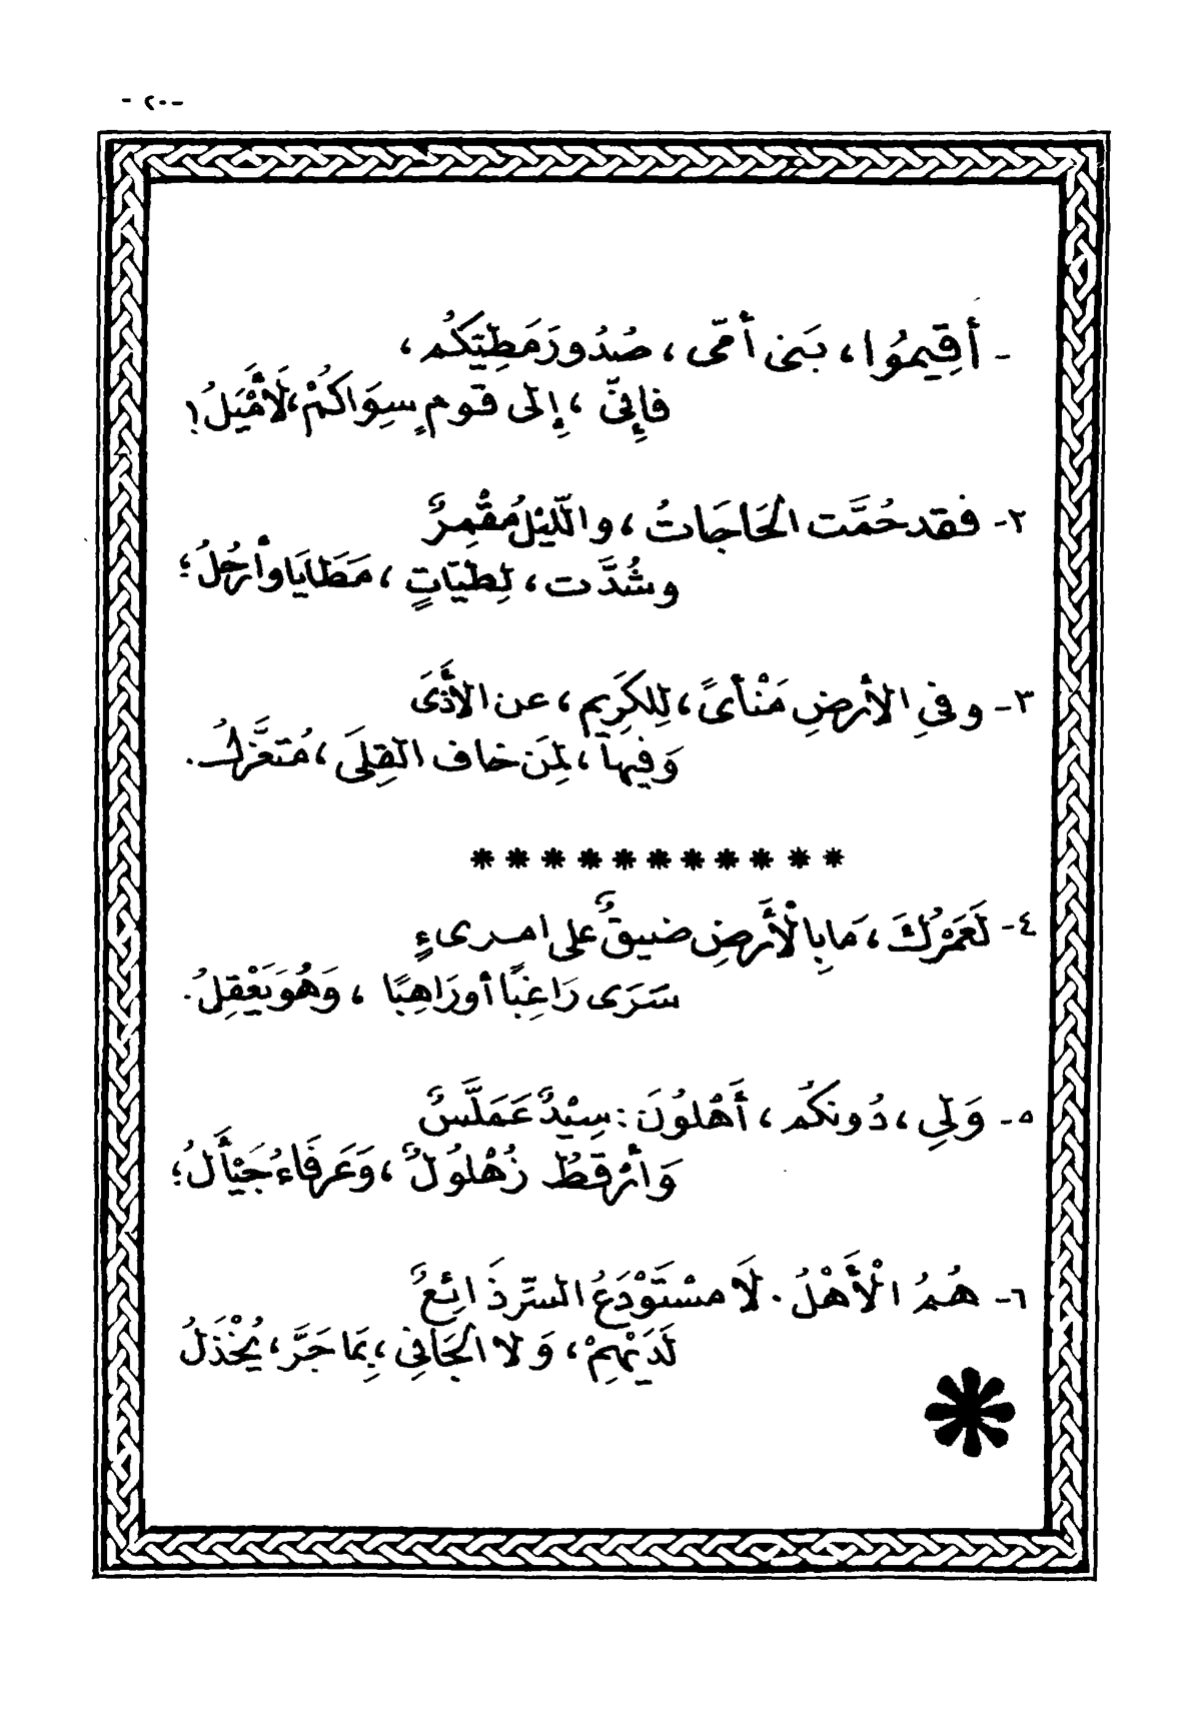 - ٢٠ -
- أَقِيمُوا، بَنى أمّى، صُدُورَ مَطِيِّكُم،
فإِنّى، إِلى قَومٍ سِوَاكُمْ، لَأَمْيَلُ!
٢- فقد حُمَّت الحَاجَاتُ، والَّليْلُ مُقْمِرٌ
وشُدَّت، لِطيّاتٍ، مَطَايَا وأرحُلُ؛
٣- وفي الأرضِ مَنْأىً، لِلكَرِيم، عن الأَذَى
وَفِيها، لِمَن خاف القِلَى، مُتَعَزَّلُ.
* * * * * * * * * * *
٤- لَعَمْرُكَ، مَا بِالْأَرضِ ضيقٌ على امرىءٍ
سَرَى رَاغِبًا أو رَاهِبًا، وَهُوَ يَعْقِلُ.
٥- وَلِي، دُونَكُم، أَهْلُونَ: سِيْدٌ عَمَلَّسٌ
وَأَرْقَطُ زُهْلُولٌ، وَعَرفَاءُ جَيْأَلُ؛
٦- هُمُ الْأَهْلُ. لَا مسْتَوْدَعُ السّرِّ ذَائِعٌ
لَدَيْهِمْ، وَلا الجَانِي، بِمَا جَرَّ، يُخْذَلُ
*